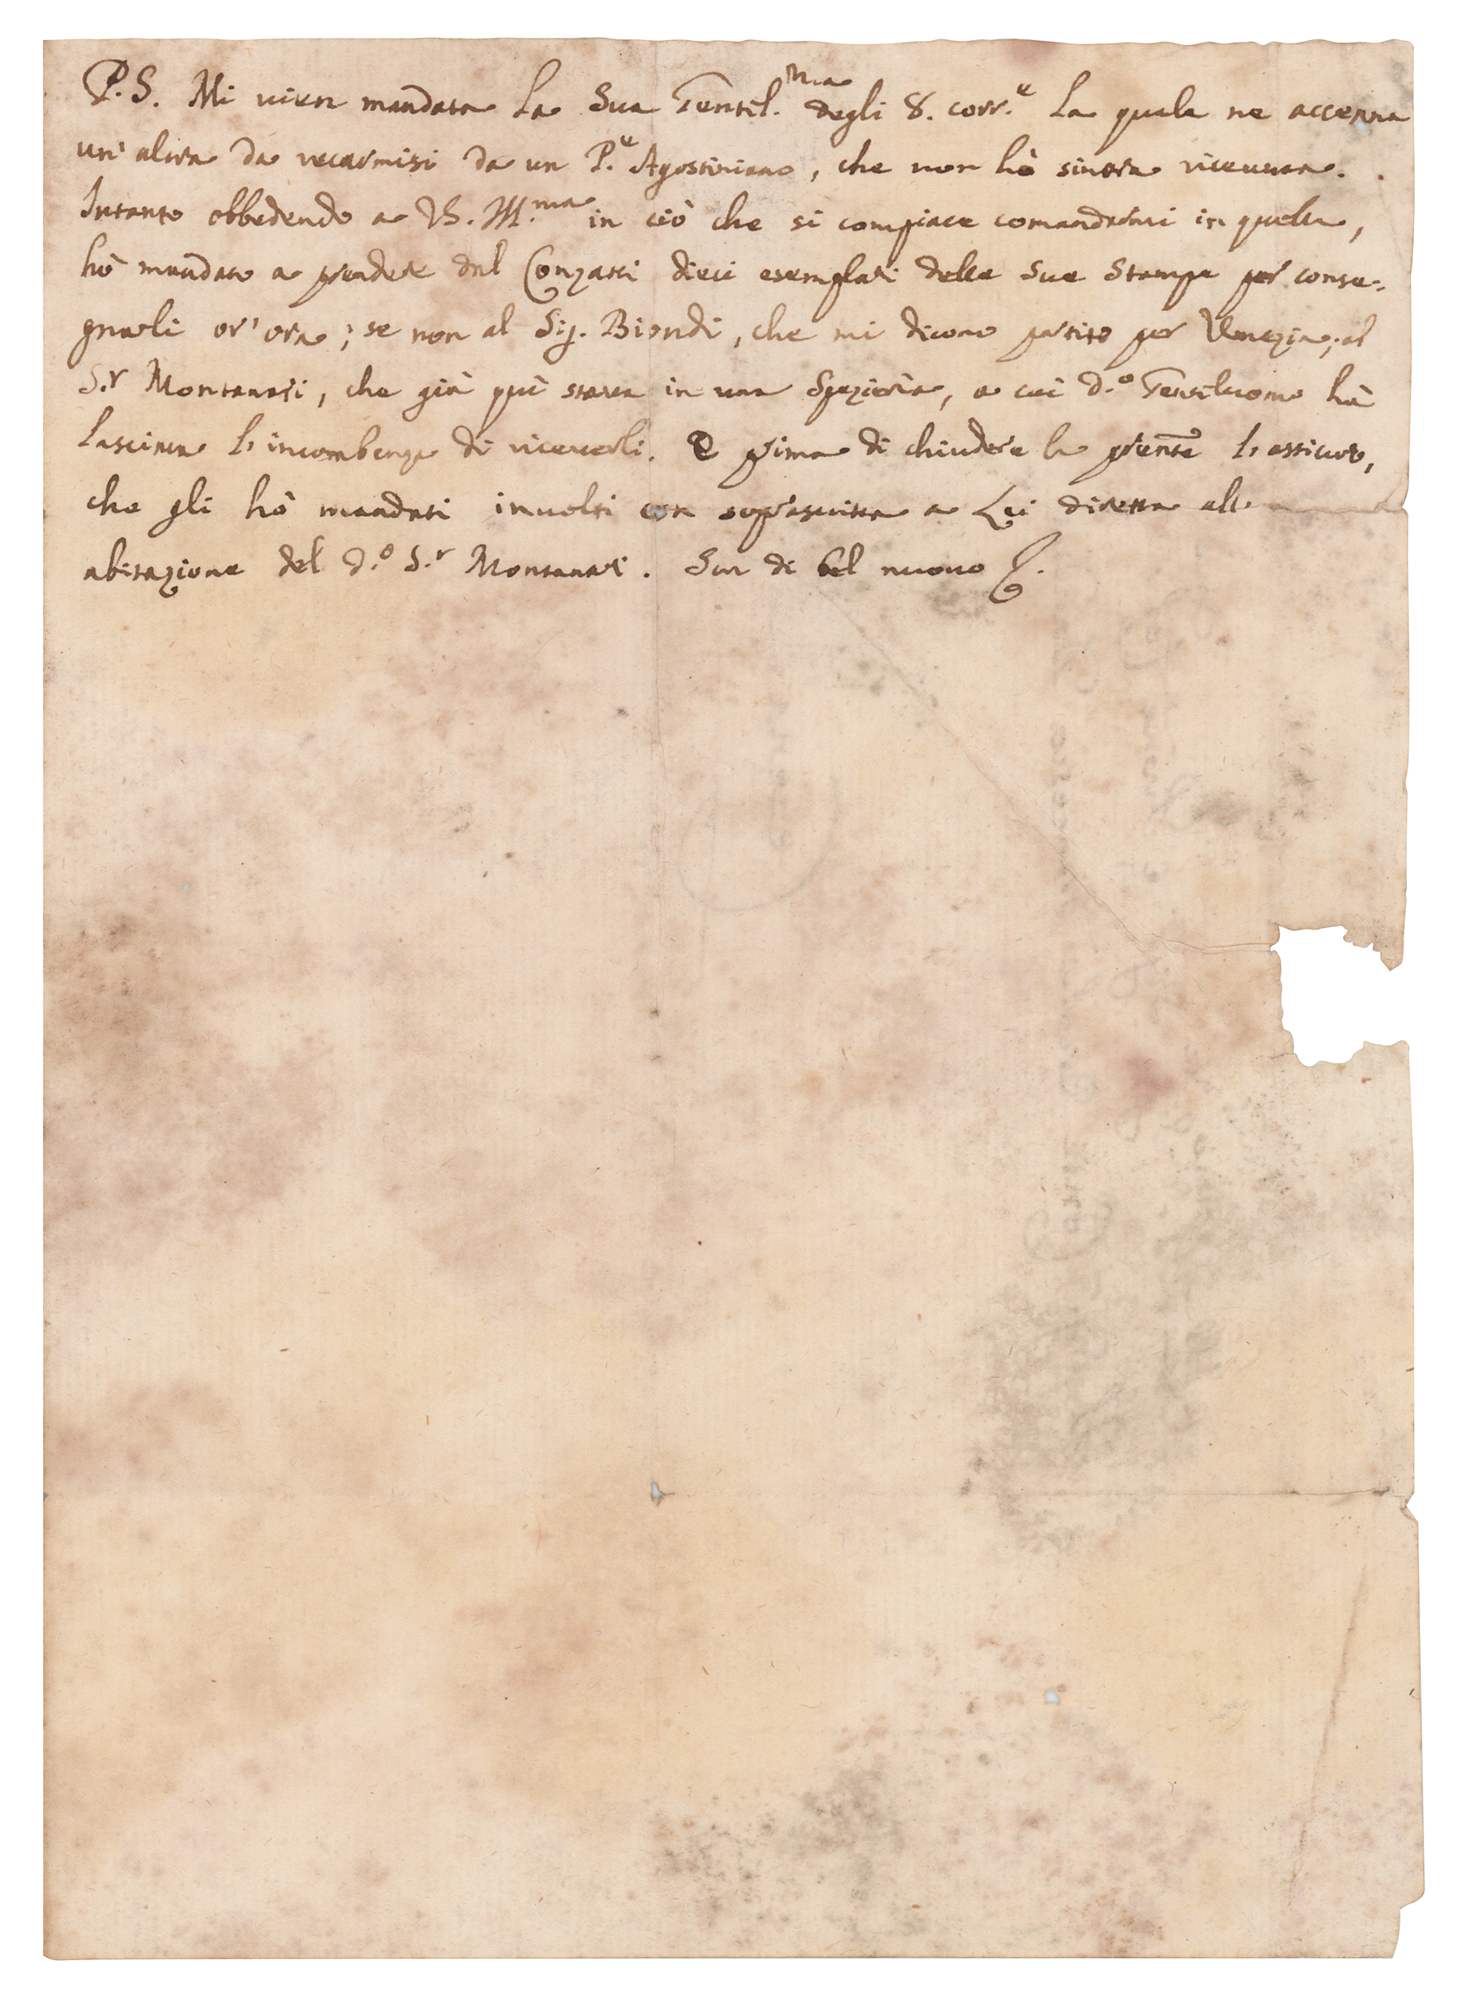 P.S. Mi vien mandata la Sua Gentil.ma degli 8. corr.e la quale ne accenna
un'altra da recarmisi da un P.e Agostiniano, che non hò sinora ricevuta.
Intanto obbedendo a VS. Ill.ma in ciò che si compiace comandarmi in quella,
hò mandato a prendere dal Conzatti dieci esemplari delle Sue Stampe per conse-
gnarli or'ora; se non al Sig. Biondi, che mi dicono partito per Venezia, al
S.r Montanari, che già quì stava in una Spezieria, a cui d.o Gentiluomo hà
lasciata l'incombenza di riceverli. E prima di chiudere la presente l'assicuro,
che gli hò mandati involti con soprascritta a Lei diretta alla
abitazione del d.o S.r Montanari. Son di bel nuovo